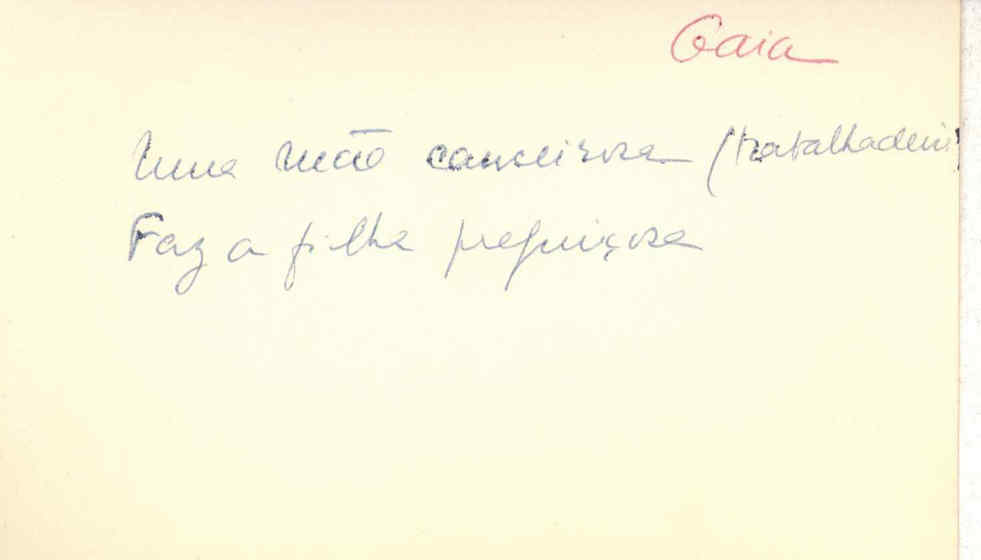 Gaia
Uma mão canseirosa (trabalhadeir
Faz a filha preguiçosa